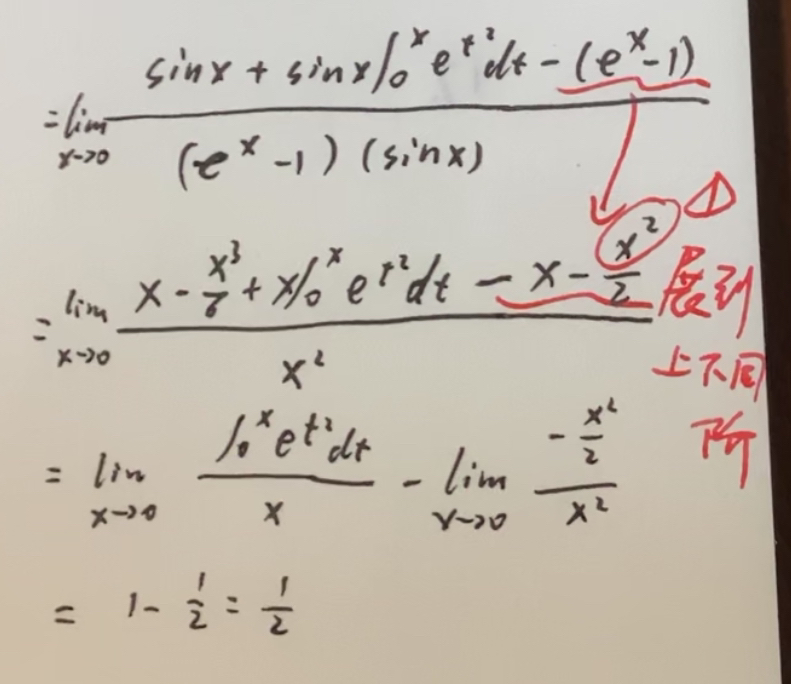 =lim x→0 (sinx + sinx∫₀ˣ e^{t²}dt − (eˣ−1)) / ((eˣ−1)(sinx))
=lim x→0 (x − x³/6 + x∫₀ˣ e^{t²}dt − x − x²/2) / x²
①
展到
上下同
阶
= lim x→0 (∫₀ˣ e^{t²}dt) / x − lim x→0 (−x²/2) / x²
= 1 − 1/2 = 1/2